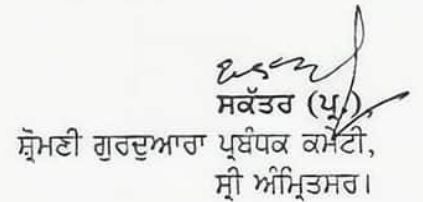 ਸਕੱਤਰ (ਪ੍ਰ.),
ਸ਼੍ਰੋਮਣੀ ਗੁਰਦੁਆਰਾ ਪ੍ਰਬੰਧਕ ਕਮੇਟੀ,
ਸ੍ਰੀ ਅੰਮ੍ਰਿਤਸਰ।